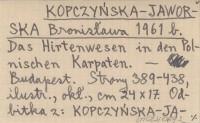 KOPCZYŃSKA-JAWOR-
SKA Bronisława 1961 b.
Das Hirtenwesen in den Pol-
nischen Karpaten. —
Budapest. Strony 389-438,
ilustr., okł., cm 24 x 17. Od-
bitka z: KOPCZYŃSKA-JA-